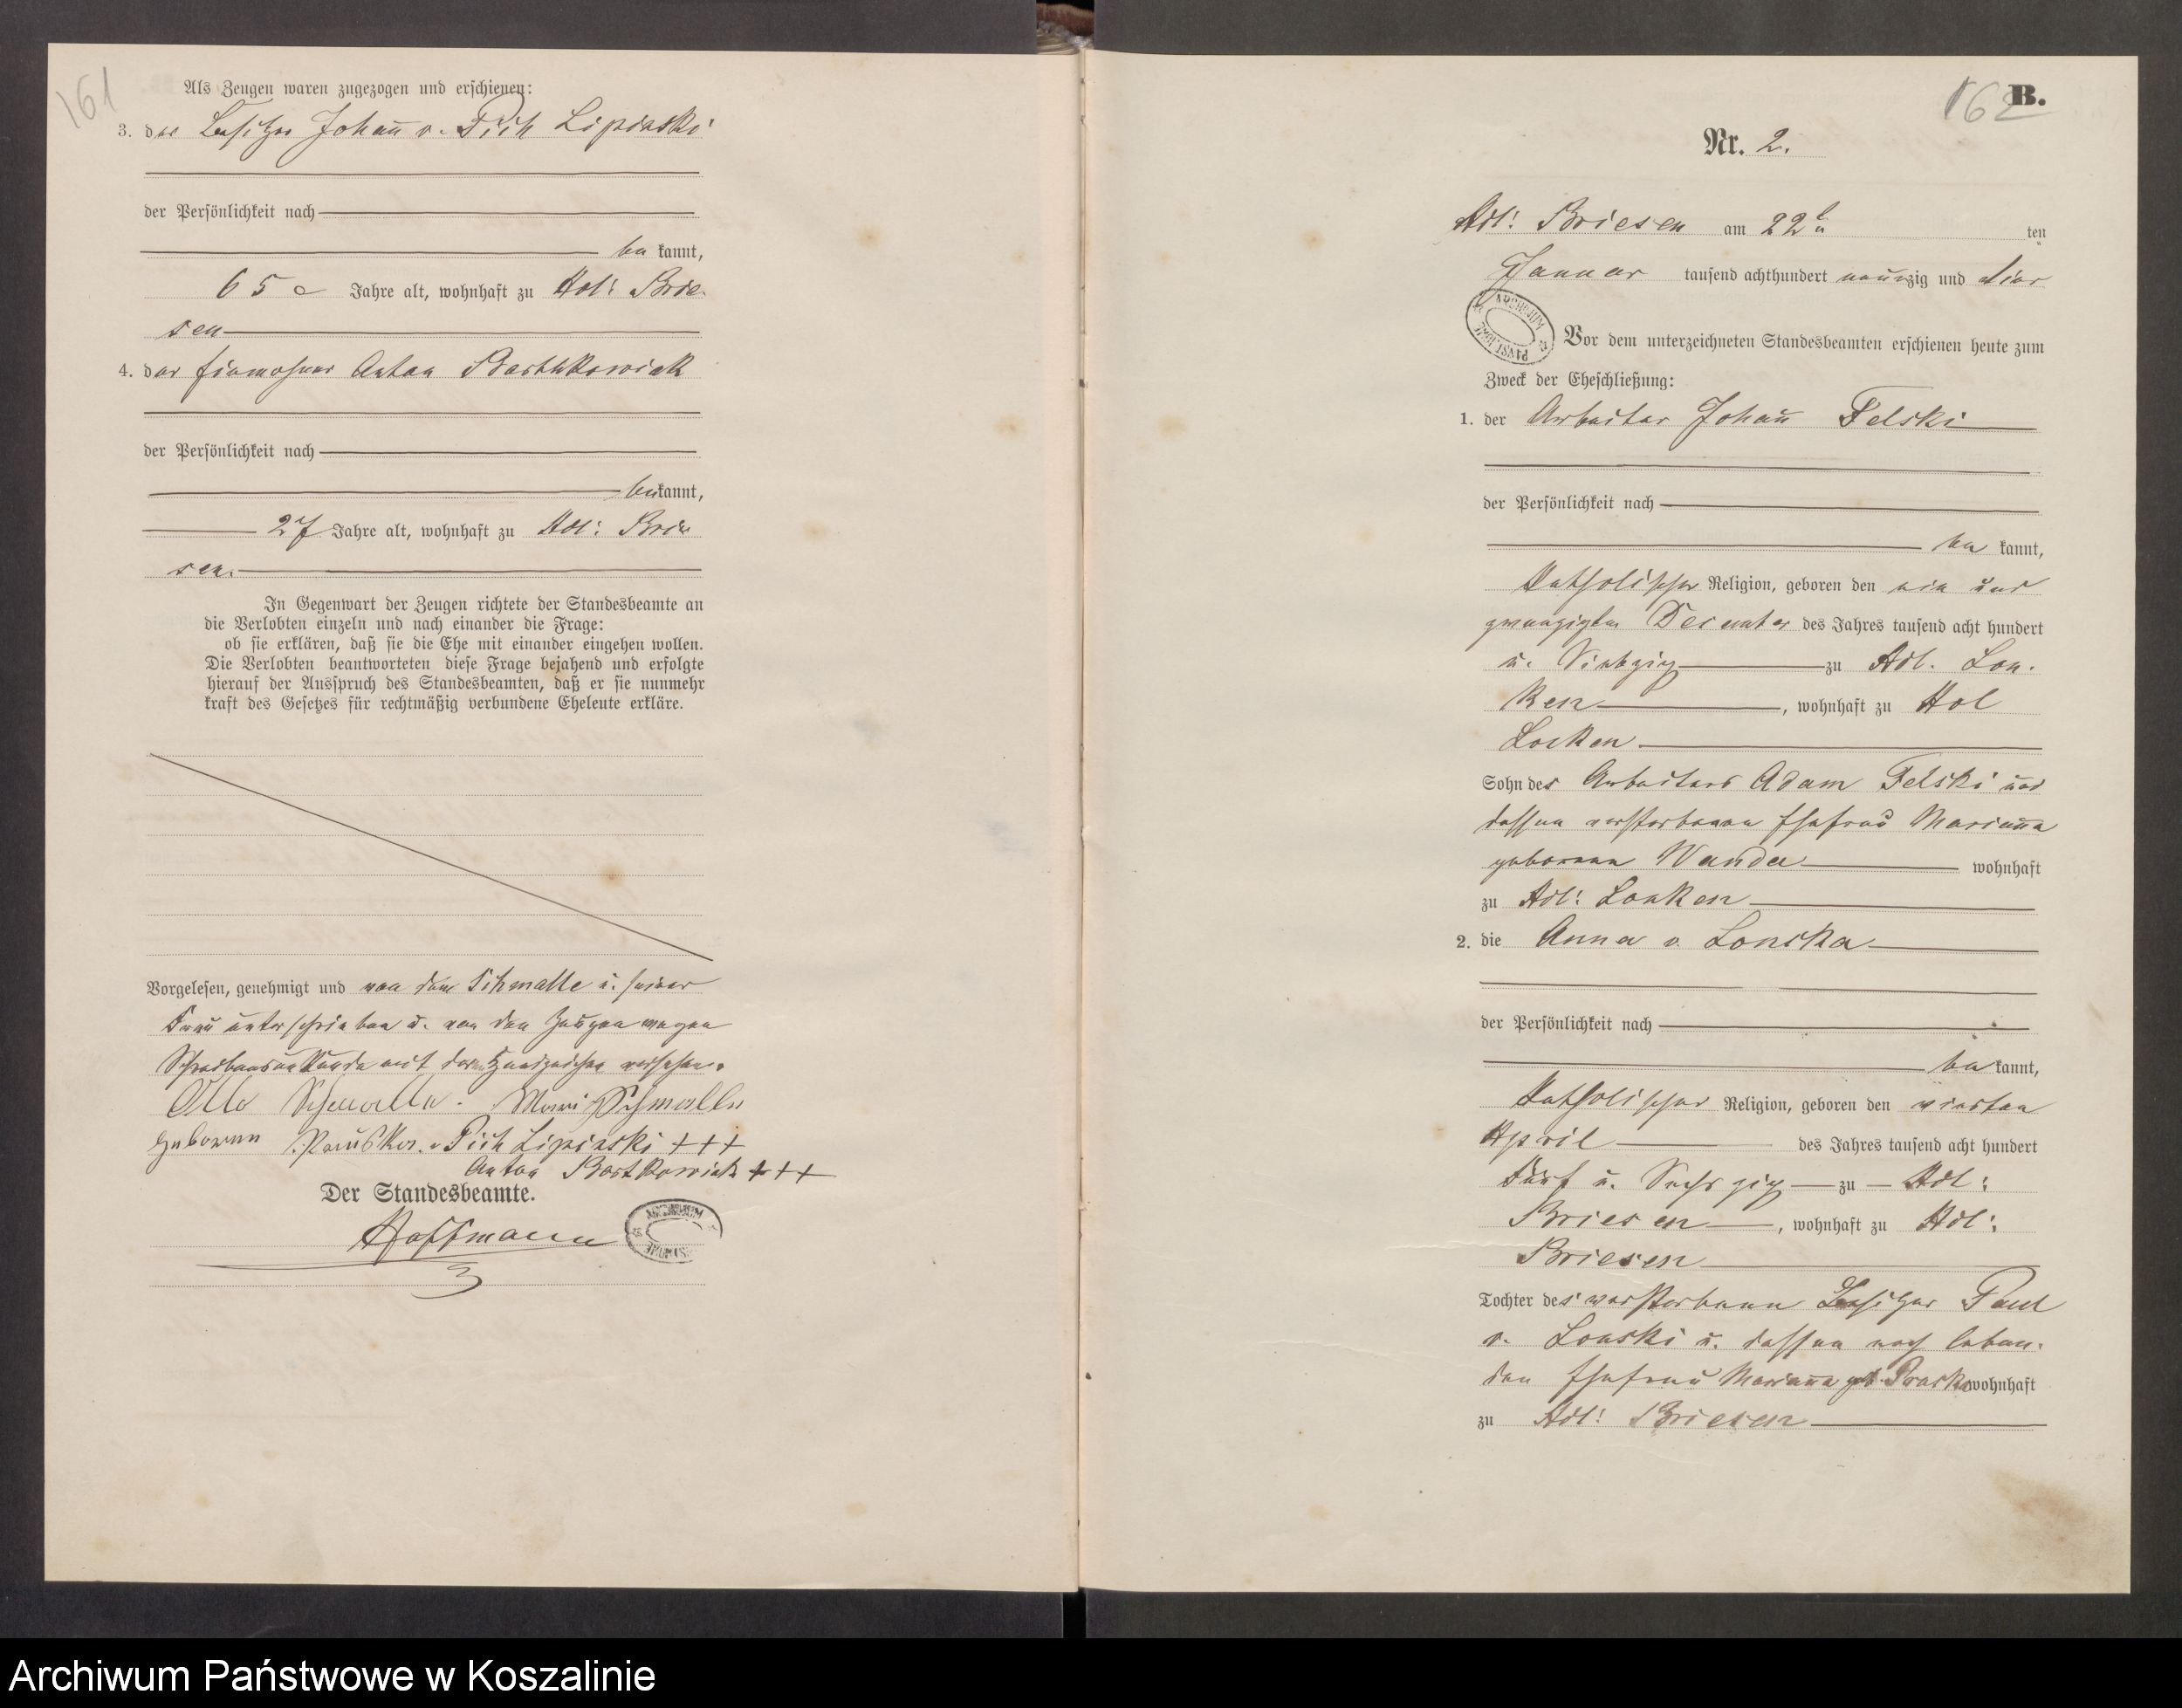 161
Als Zeugen waren zugezogen und erschienen:
3. der Besitzer Johann v. Pich Lipinski
der Persönlichkeit nach
be kannt,
65 Jahre alt, wohnhaft zu Adl: Brie-
sen
4. der Anton Barthkowiak
der Persönlichkeit nach
bekannt,
27 Jahre alt, wohnhaft zu Adl: Brie
sen.
In Gegenwart der Zeugen richtete der Standesbeamte an
die Verlobten einzeln und nach einander die Frage:
ob sie erklären, daß sie die Ehe mit einander eingehen wollen.
Die Verlobten beantworteten diese Frage bejahend und erfolgte
hierauf der Ausspruch des Standesbeamten, daß er sie nunmehr
kraft des Gesetzes für rechtmäßig verbundene Eheleute erkläre.
Vorgelesen, genehmigt und von dem Schmalle u. seiner
Frau unterschrieben u. von den Zeugen wegen
Schreibensunkunde mit deren Handzeichen versehen.
Otto Schmalle. Mari Schmalle
geboren v. Pich Lipinski +++
Anton Bartkowiak +++
Der Standesbeamte.
Hoffmann
ARCHIWUM
162
B.
Nr. 2.
Adl: Briesen am 22 ten
Januar tausend achthundert neunzig und vier
ARCHIWUM
Vor dem unterzeichneten Standesbeamten erschienen heute zum
Zweck der Eheschließung:
1. der Arbeiter Johann Felski
der Persönlichkeit nach
be kannt,
katholischer Religion, geboren den ein und
zwanzigten Dezember des Jahres tausend acht hundert
u. Siebzig zu Adl. Lon-
ken, wohnhaft zu Adl
Lonken
Sohn des Arbeiters Adam Felski und
dessen verstorbenen Ehefrau Marianna
geborenen Wanda wohnhaft
zu Adl: Lonken
2. die Anna v. Lonska
der Persönlichkeit nach
be kannt,
katholischer Religion, geboren den vierten
April des Jahres tausend acht hundert
fünf u. Sechszig zu Adl:
Briesen, wohnhaft zu Adl:
Briesen
Tochter des verstorbenen Besitzer Paul
v. Lonski u. dessen noch leben-
den Ehefrau Marianna geb. wohnhaft
zu Adl: Briesen
Archiwum Państwowe w Koszalinie